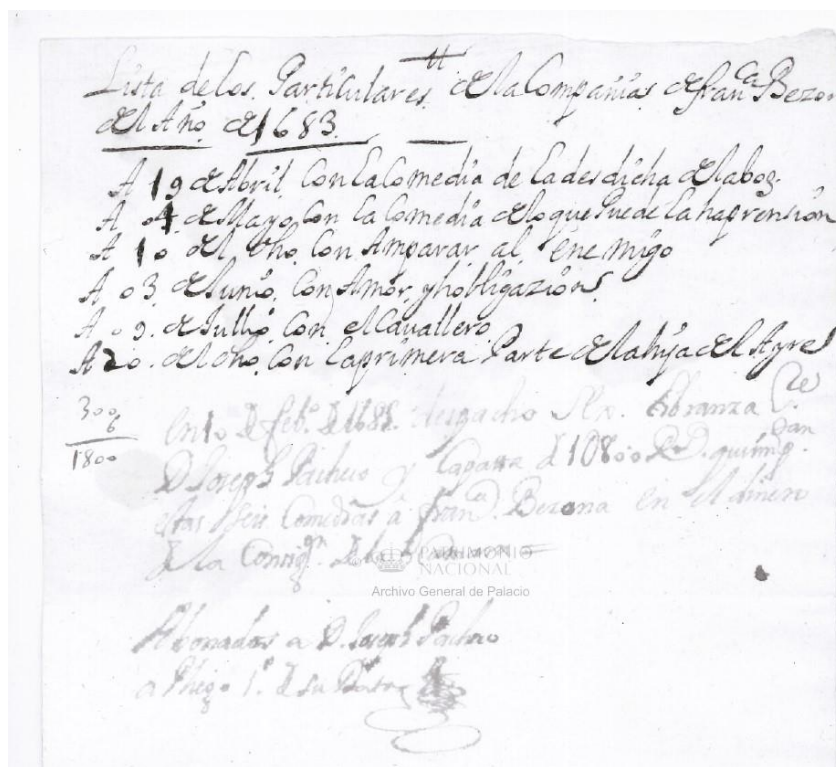 tt
Lista de los Particulares de la Compañias de franca Bezon
del Año de 1683
A 19 de Abril Con la Comedia de la desdicha de la boz
A 04 de Mayo Con la Comedia de lo que Puede la haprension
A 10 del dho Con Amparar al Enemigo
A 03 de Junio Con Amor y hobligazion
A 09 de Jullio Con el Cavallero
A 20 del dho Con la primera Parte de la hija del Ayre
300
6
1800
en 10 de febo de despacho Libranza
D Joseph Pacheco y Zapatta de 10800 Rs
estas seis Comedias a franca Bezona en el dinero
de la Consign de las
PATRIMONIO
NACIONAL
Archivo General de Palacio
Abonadas a D. Joseph Pacheco
a Pliego 1º de su Datta